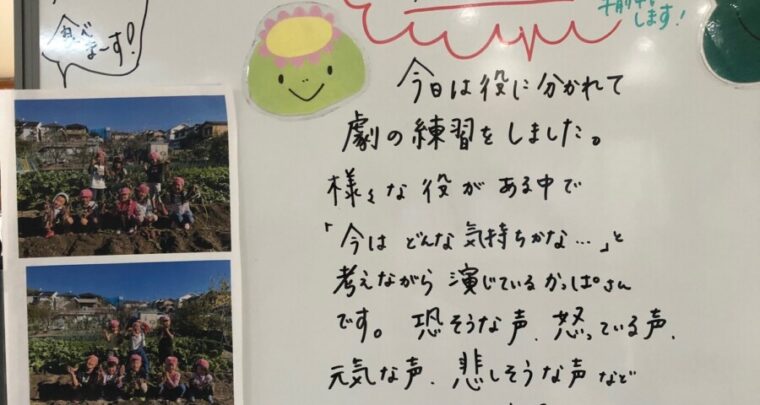 食べ
まーす!
します!
今日は役に分かれて
劇の練習をしました。
様々な役がある中で
「今は どんな気持ちかな…」と
考えながら 演じているかっぱさん
です。恐そうな声、怒っている声、
元気な声、悲しそうな声など